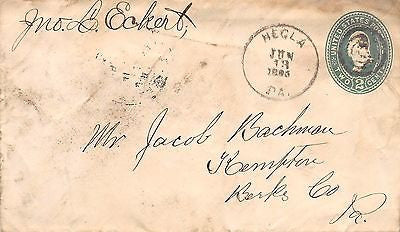 Jno. L. Eckert,
HECLA
JUN
13
PA.
UNITED STATES
TWO 2 CENTS
Mr. Jacob Bachman
Kempton
Berks Co
Pa.